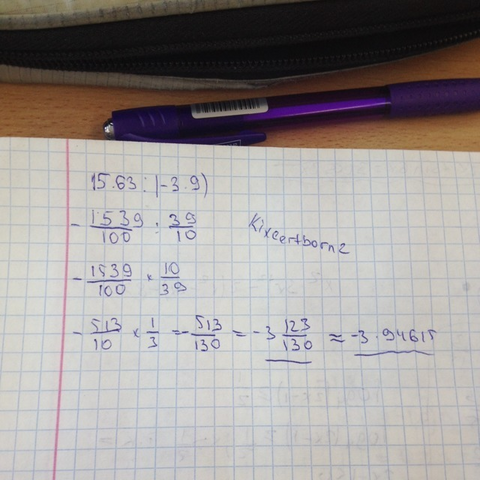 15.63 : (-3.9)
- 1539/100 : 39/10
Kixcertborn2
- 1539/100 × 10/39
- 513/10 × 1/3 = - 513/130 = -3 123/130 ≈ -3.94615